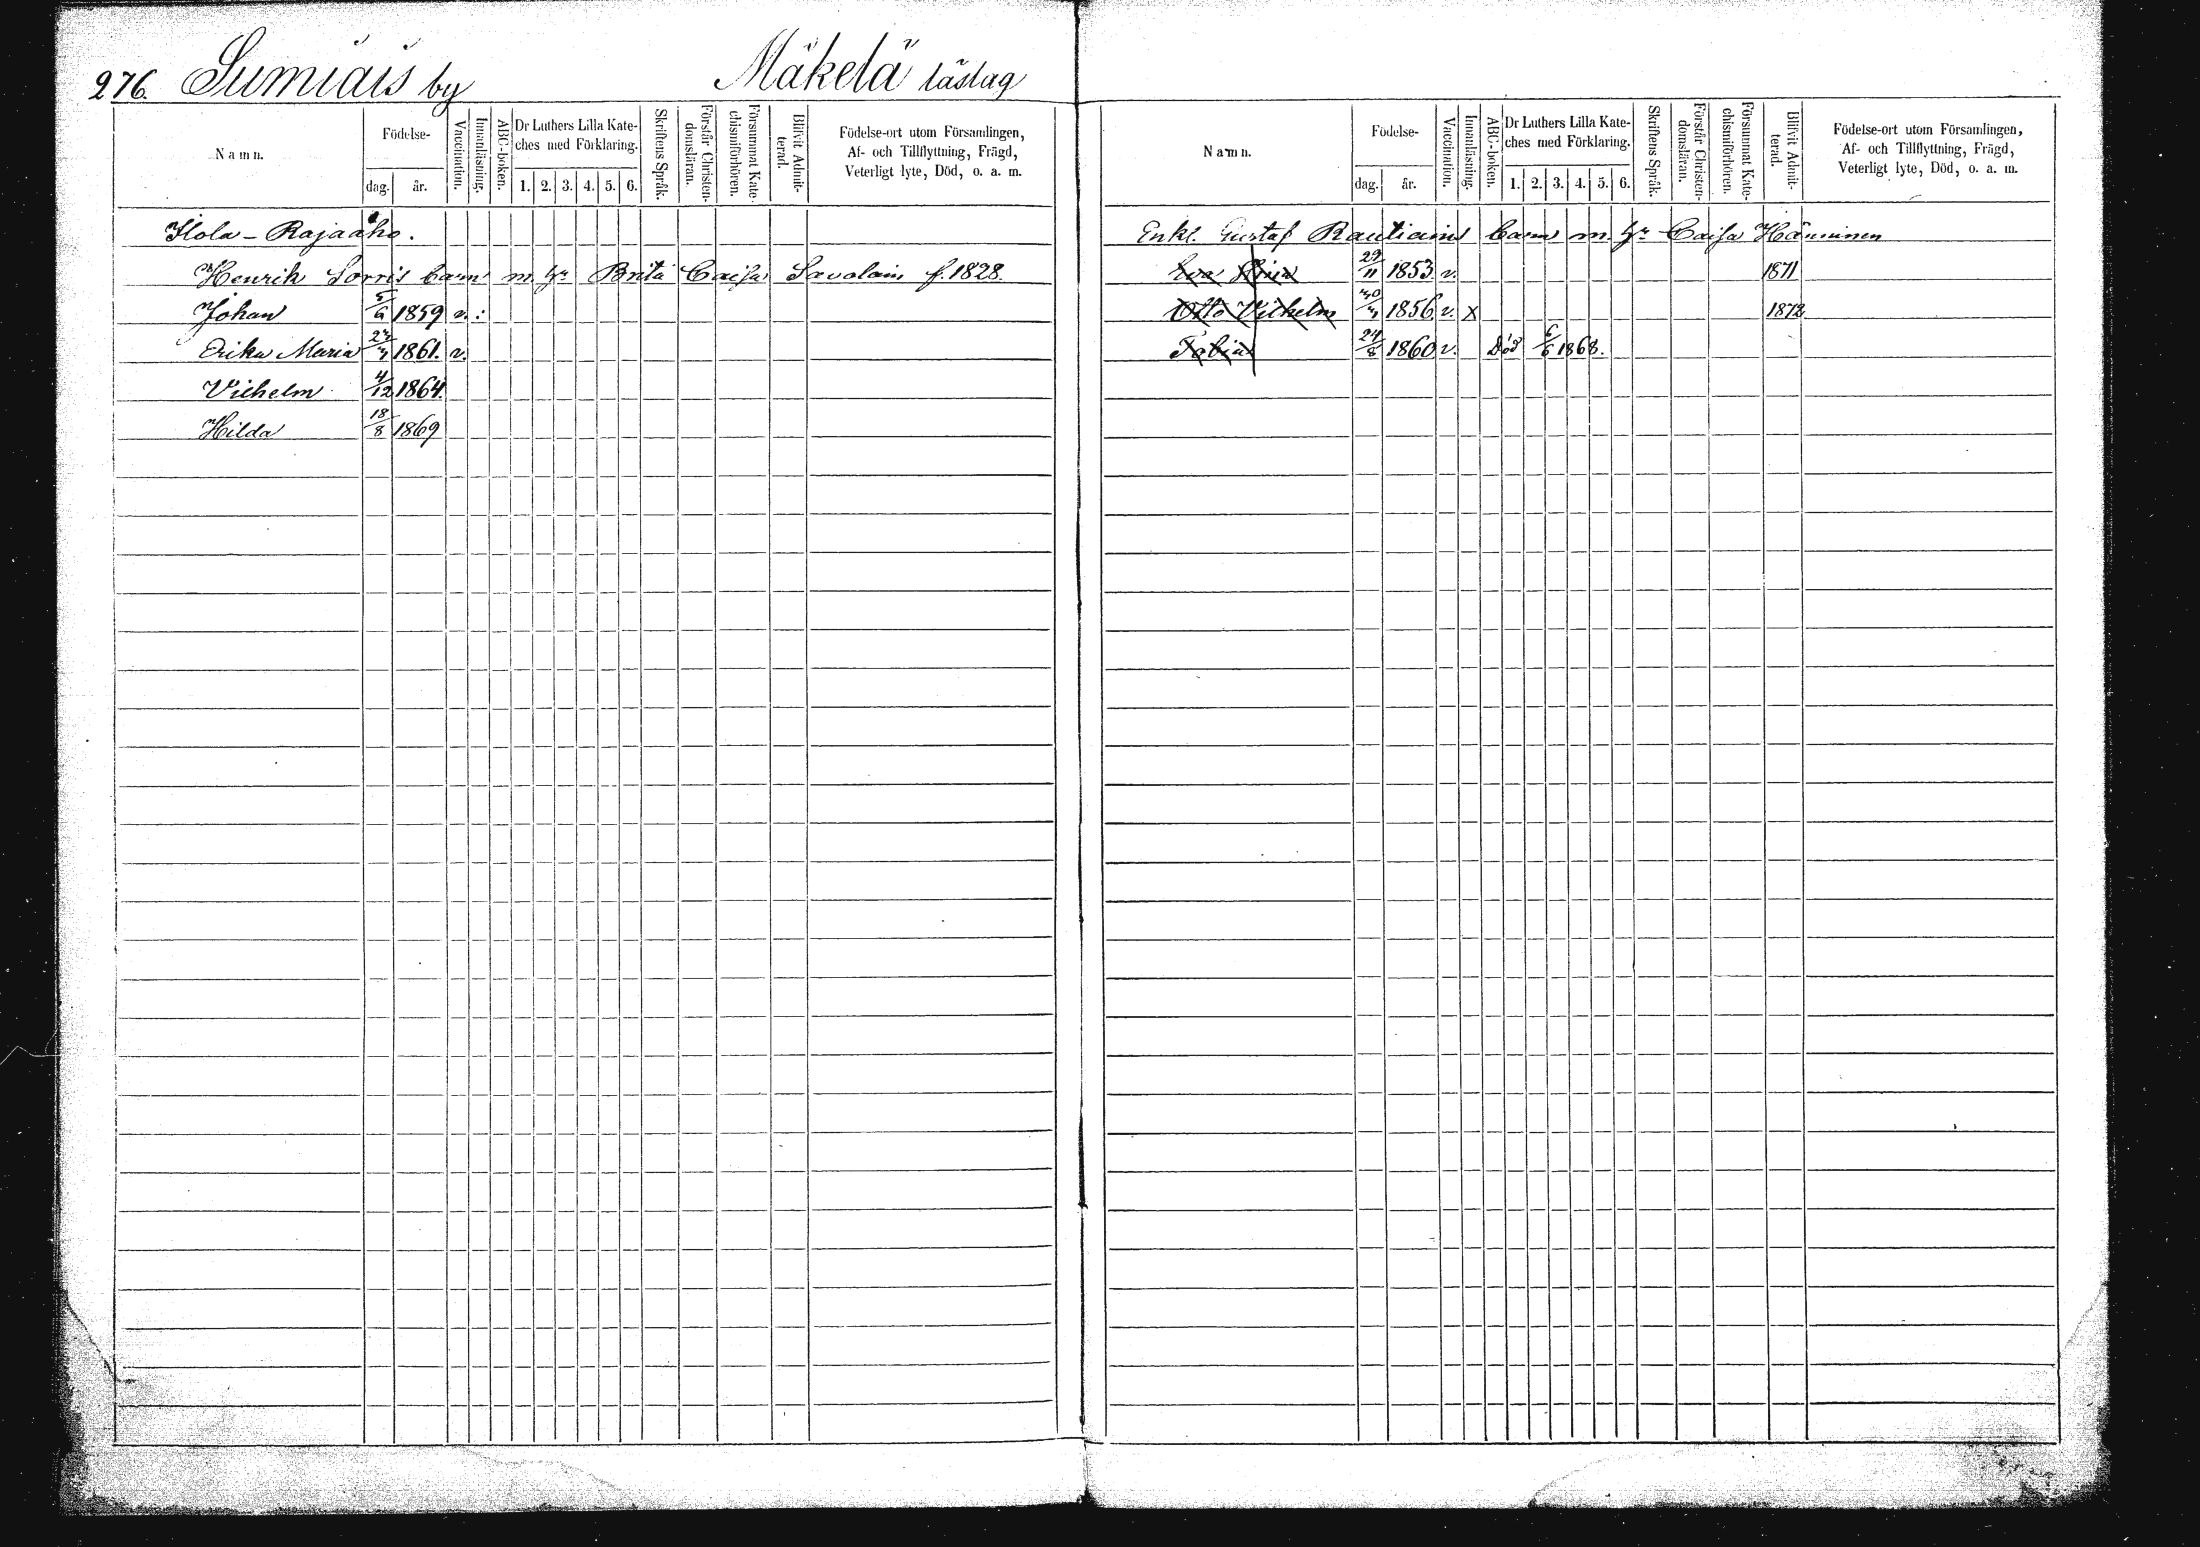 276. Sumiais by Mäkelä läslag
Namn.
Födelse-
dag.
år.
Vaccination.
Innanläsning.
ABC-boken.
Dr Luthers Lilla Kate-
ches med Förklaring.
1. 2. 3. 4. 5. 6.
Skriftens Språk.
Förstår Christen-
domsläran.
Försummat Kate-
chismiförhören.
Blifvit Admit-
terad.
Födelse-ort utom Församlingen,
Af- och Tillflyttning, Frägd,
Veterligt lyte, Död, o. a. m.
Ilola - Rajaaho.
Henrik Sorris barn m. hr. Brita Caisa Savolain f. 1828.
Johan 5/6 1859 v. :
Erika Maria 1861. v.
Vilhelm 4/12 1864.
Hilda 18/8 1869
Namn.
Födelse-
dag.
år.
Vaccination.
Innanläsning.
ABC-boken.
Dr Luthers Lilla Kate-
ches med Förklaring.
1. 2. 3. 4. 5. 6.
Skriftens Språk.
Förstår Christen-
domsläran.
Försummat Kate-
chismiförhören.
Blifvit Admit-
terad.
Födelse-ort utom Församlingen,
Af- och Tillflyttning, Frägd,
Veterligt lyte, Död, o. a. m.
Enkl. Gustaf Rautiains barn m. hr. Caisa Hänninen
Eva 29/11 1853 v. 1871
Otto Vilhelm 1856 v. X 1872
Tobias 24/8 1860 v. Död 6/6 1868.